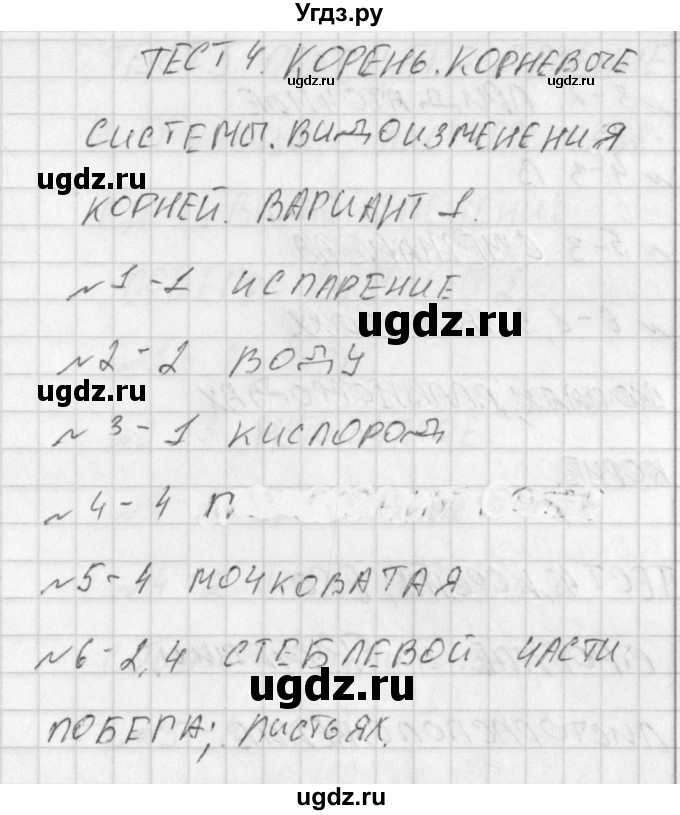 Угдз.ру
ТЕСТ 4. КОРЕНЬ. КОРНЕВЫЕ
ugdz.ru ugdz.ru
СИСТЕМЫ. ВИДОИЗМЕНЕНИЯ
ugdz.ru
КОРНЕЙ. ВАРИАНТ 1.
№1-1 ИСПАРЕНИЕ
ugdz.ru
№2-2 ВОДУ
ugdz.ru
№3-1 КИСЛОРОД
№4-4
№5-4 МОЧКОВАТАЯ
№6-2,4 СТЕБЛЕВОЙ ЧАСТИ
ugdz.ru
ПОБЕГА; ЛИСТЬЯХ.
ugdz.ru
ugdz.ru